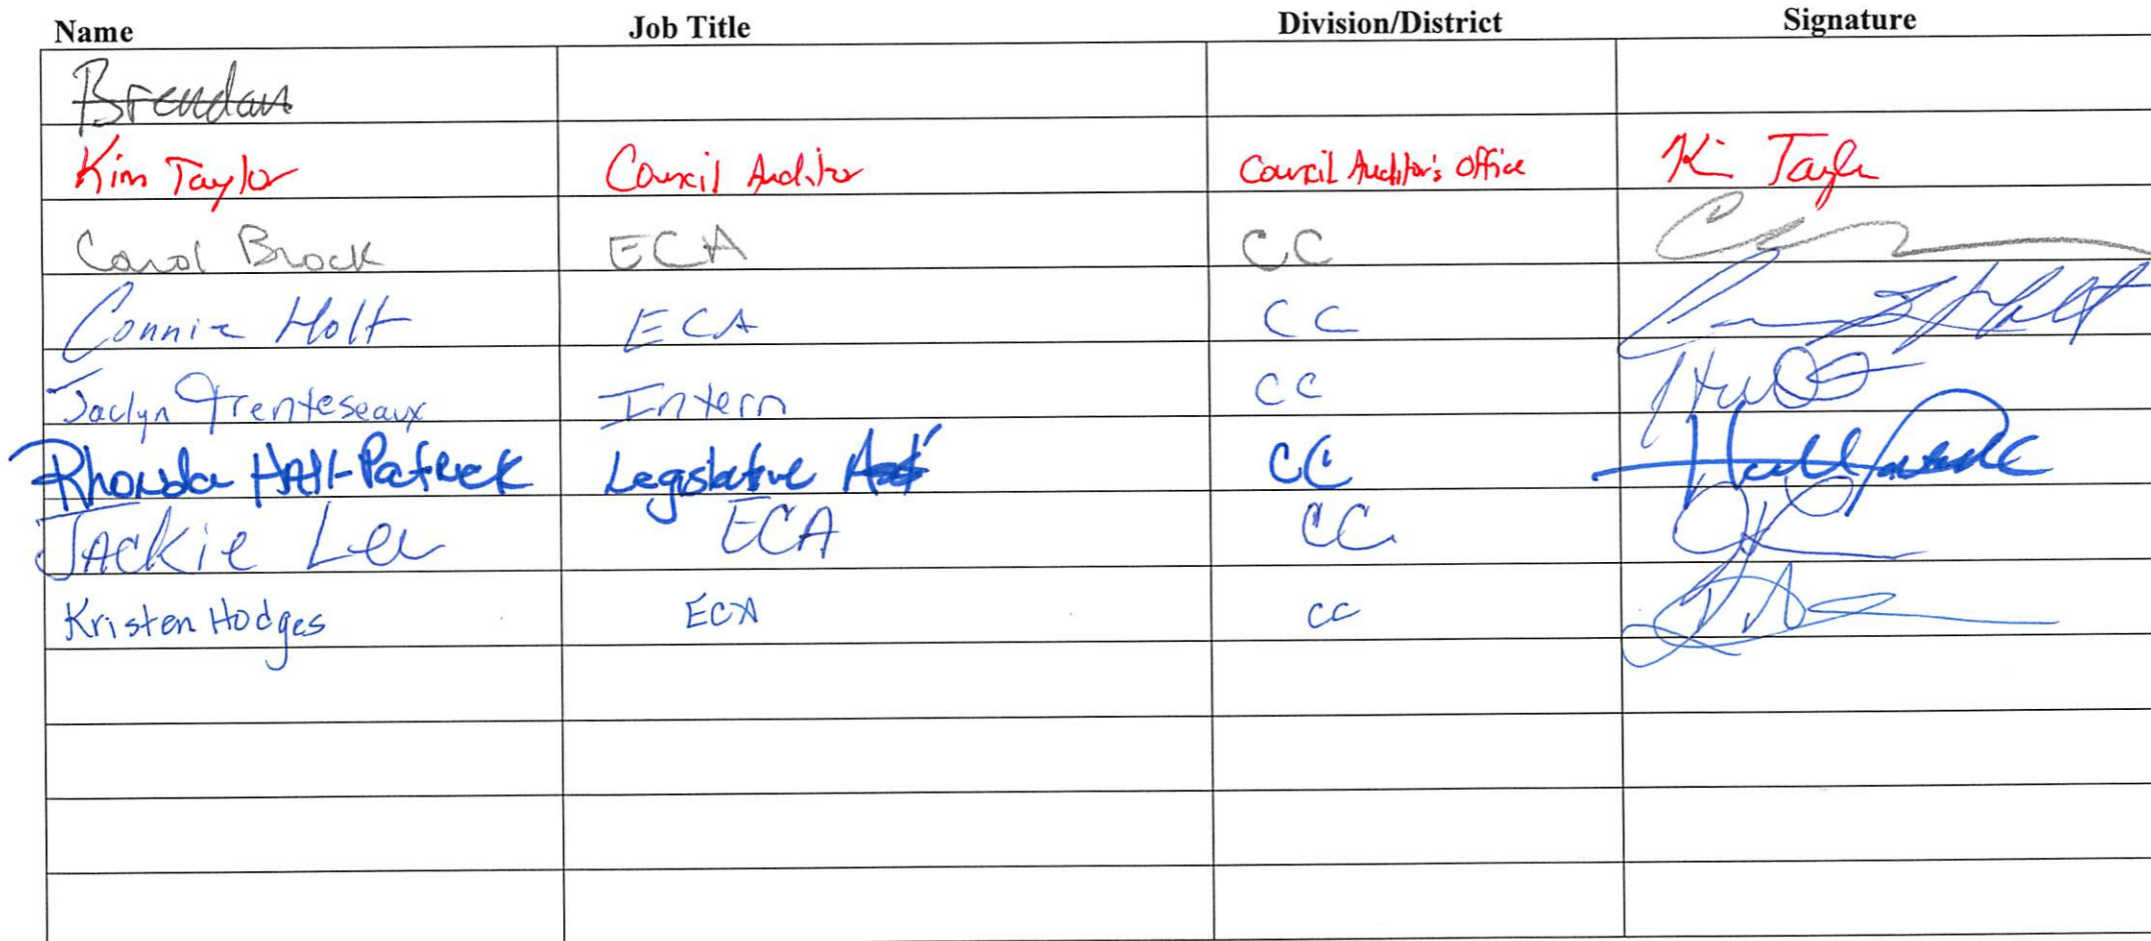 Name Job Title Division/District Signature
Brendan
Kim Taylor Council Auditor Council Auditor's Office Ki Tayl
Carol Brock ECA CC
Connie Holt ECA CC Holt
Jaclyn Trenteseaux Intern CC
Rhonda Hall-Patrick Legislative CC
Jackie Lee ECA CC
Kristen Hodges ECA CC